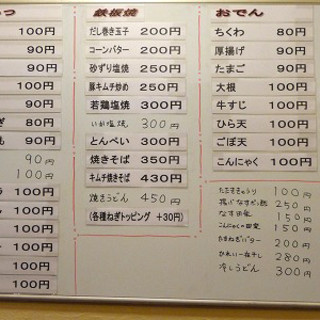 つ
100円
90円
90円
90円
90円
80円
90円
90円
100円
100円
100円
100円
100円
100円
鉄板焼
だし巻き玉子 200円
コーンバター 200円
砂ずり塩焼 250円
豚キムチ炒め 250円
若鶏塩焼 300円
いか塩焼 300円
とんぺい 300円
焼きそば 350円
キムチ焼きそば 430円
焼きうどん 450円
(各種ねぎトッピング +30円)
おでん
ちくわ 80円
厚揚げ 90円
たまご 90円
大根 100円
牛すじ 100円
ひら天 100円
ごぼ天 100円
こんにゃく 100円
たたききゅうり 100円
250円
なす田楽 150円
こんにゃくの田楽 150円
たまねぎバター 200円
かれい一夜干し 280円
冷しうどん 300円